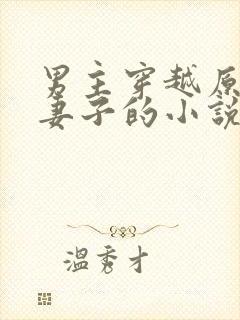 男主穿越原
妻子的小說
溫秀才